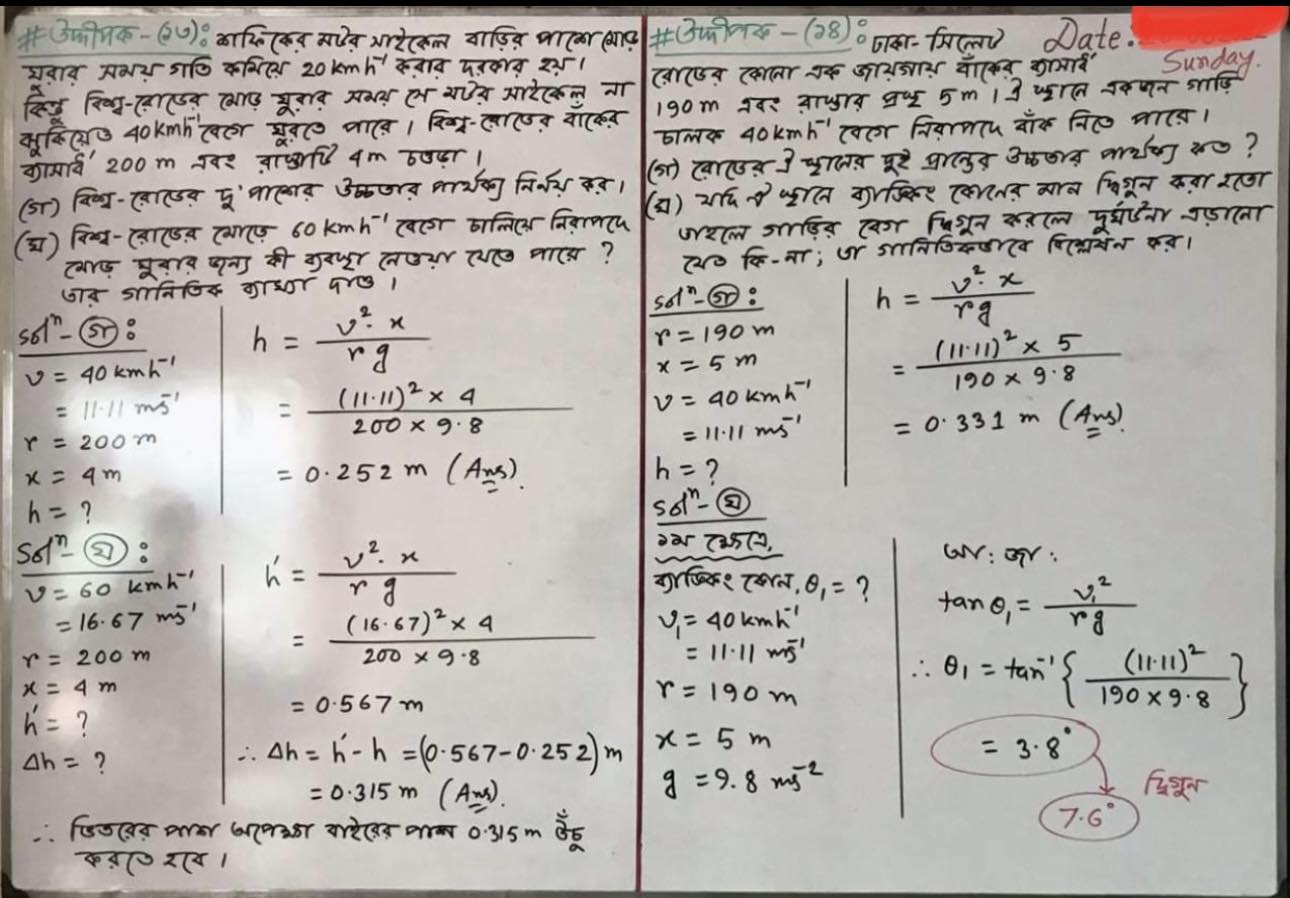 #উদ্দীপক-(১৩): শফিকের মটর সাইকেল বাড়ির পাশে মোড়
ঘুরার সময় গতি কমিয়ে 20 kmh⁻¹ করার দরকার হয়।
কিন্তু বিশ্ব-রোডের মোড় ঘুরার সময় সে মটর সাইকেল না
ঝুকিয়েও 40 kmh⁻¹ বেগে ঘুরতে পারে। বিশ্ব-রোডের বাঁকের
ব্যাসার্ধ 200 m এবং রাস্তাটি 4m চওড়া।
(গ) বিশ্ব-রোডের দু'পাশের উচ্চতার পার্থক্য নির্নয় কর।
(ঘ) বিশ্ব-রোডের মোড়ে 60 kmh⁻¹ বেগে চালিয়ে নিরাপদে
মোড় ঘুরার জন্য কী ব্যবস্থা নেওয়া যেতে পারে?
তার গানিতিক ব্যাখ্যা দাও।
solⁿ-(গ):
v = 40 kmh⁻¹
= 11.11 ms⁻¹
r = 200 m
x = 4 m
h = ?
h = v². x / r g
= (11.11)² × 4 / 200 × 9.8
= 0.252 m (Ans).
Solⁿ-(ঘ):
v = 60 kmh⁻¹
= 16.67 ms⁻¹
r = 200 m
x = 4 m
h' = ?
Δh = ?
h' = v². x / r g
= (16.67)² × 4 / 200 × 9.8
= 0.567 m
∴ Δh = h' - h = (0.567-0.252) m
= 0.315 m (Ans).
∴ ভিতরের পাশ অপেক্ষা বাইরের পাশ 0.315 m উঁচু
করতে হবে।
#উদ্দীপক-(১৪): ঢাকা-সিলেট
Date.
Sunday.
রোডের কোনো এক জায়গায় বাঁকের ব্যাসার্ধ
190 m এবং রাস্তার প্রস্থ 5 m। ঐ স্থানে একজন গাড়ি
চালক 40 kmh⁻¹ বেগে নিরাপদে বাঁক নিতে পারে।
(গ) রোডের ঐ স্থানের দুই প্রান্তের উচ্চতার পার্থক্য কত?
(ঘ) যদি ঐ স্থানে ব্যাঙ্কিং কোনের মান দ্বিগুন করা হতো
তাহলে গাড়ির বেগ দ্বিগুন করলে দুর্ঘটনা এড়ানো
যেত কি-না; তা গানিতিকভাবে বিশ্লেষন কর।
solⁿ-(গ):
r = 190 m
x = 5 m
v = 40 kmh⁻¹
= 11.11 ms⁻¹
h = ?
h = v². x / r g
= (11.11)² × 5 / 190 × 9.8
= 0.331 m (Ans).
solⁿ-(ঘ)
১ম ক্ষেত্রে,
ব্যাঙ্কিং কোন, θ₁ = ?
v₁ = 40 kmh⁻¹
= 11.11 ms⁻¹
r = 190 m
x = 5 m
g = 9.8 ms⁻²
আ: জা:
tan θ₁ = v₁² / r g
∴ θ₁ = tan⁻¹ { (11.11)² / 190 × 9.8 }
= 3.8°
দ্বিগুন
7.6°